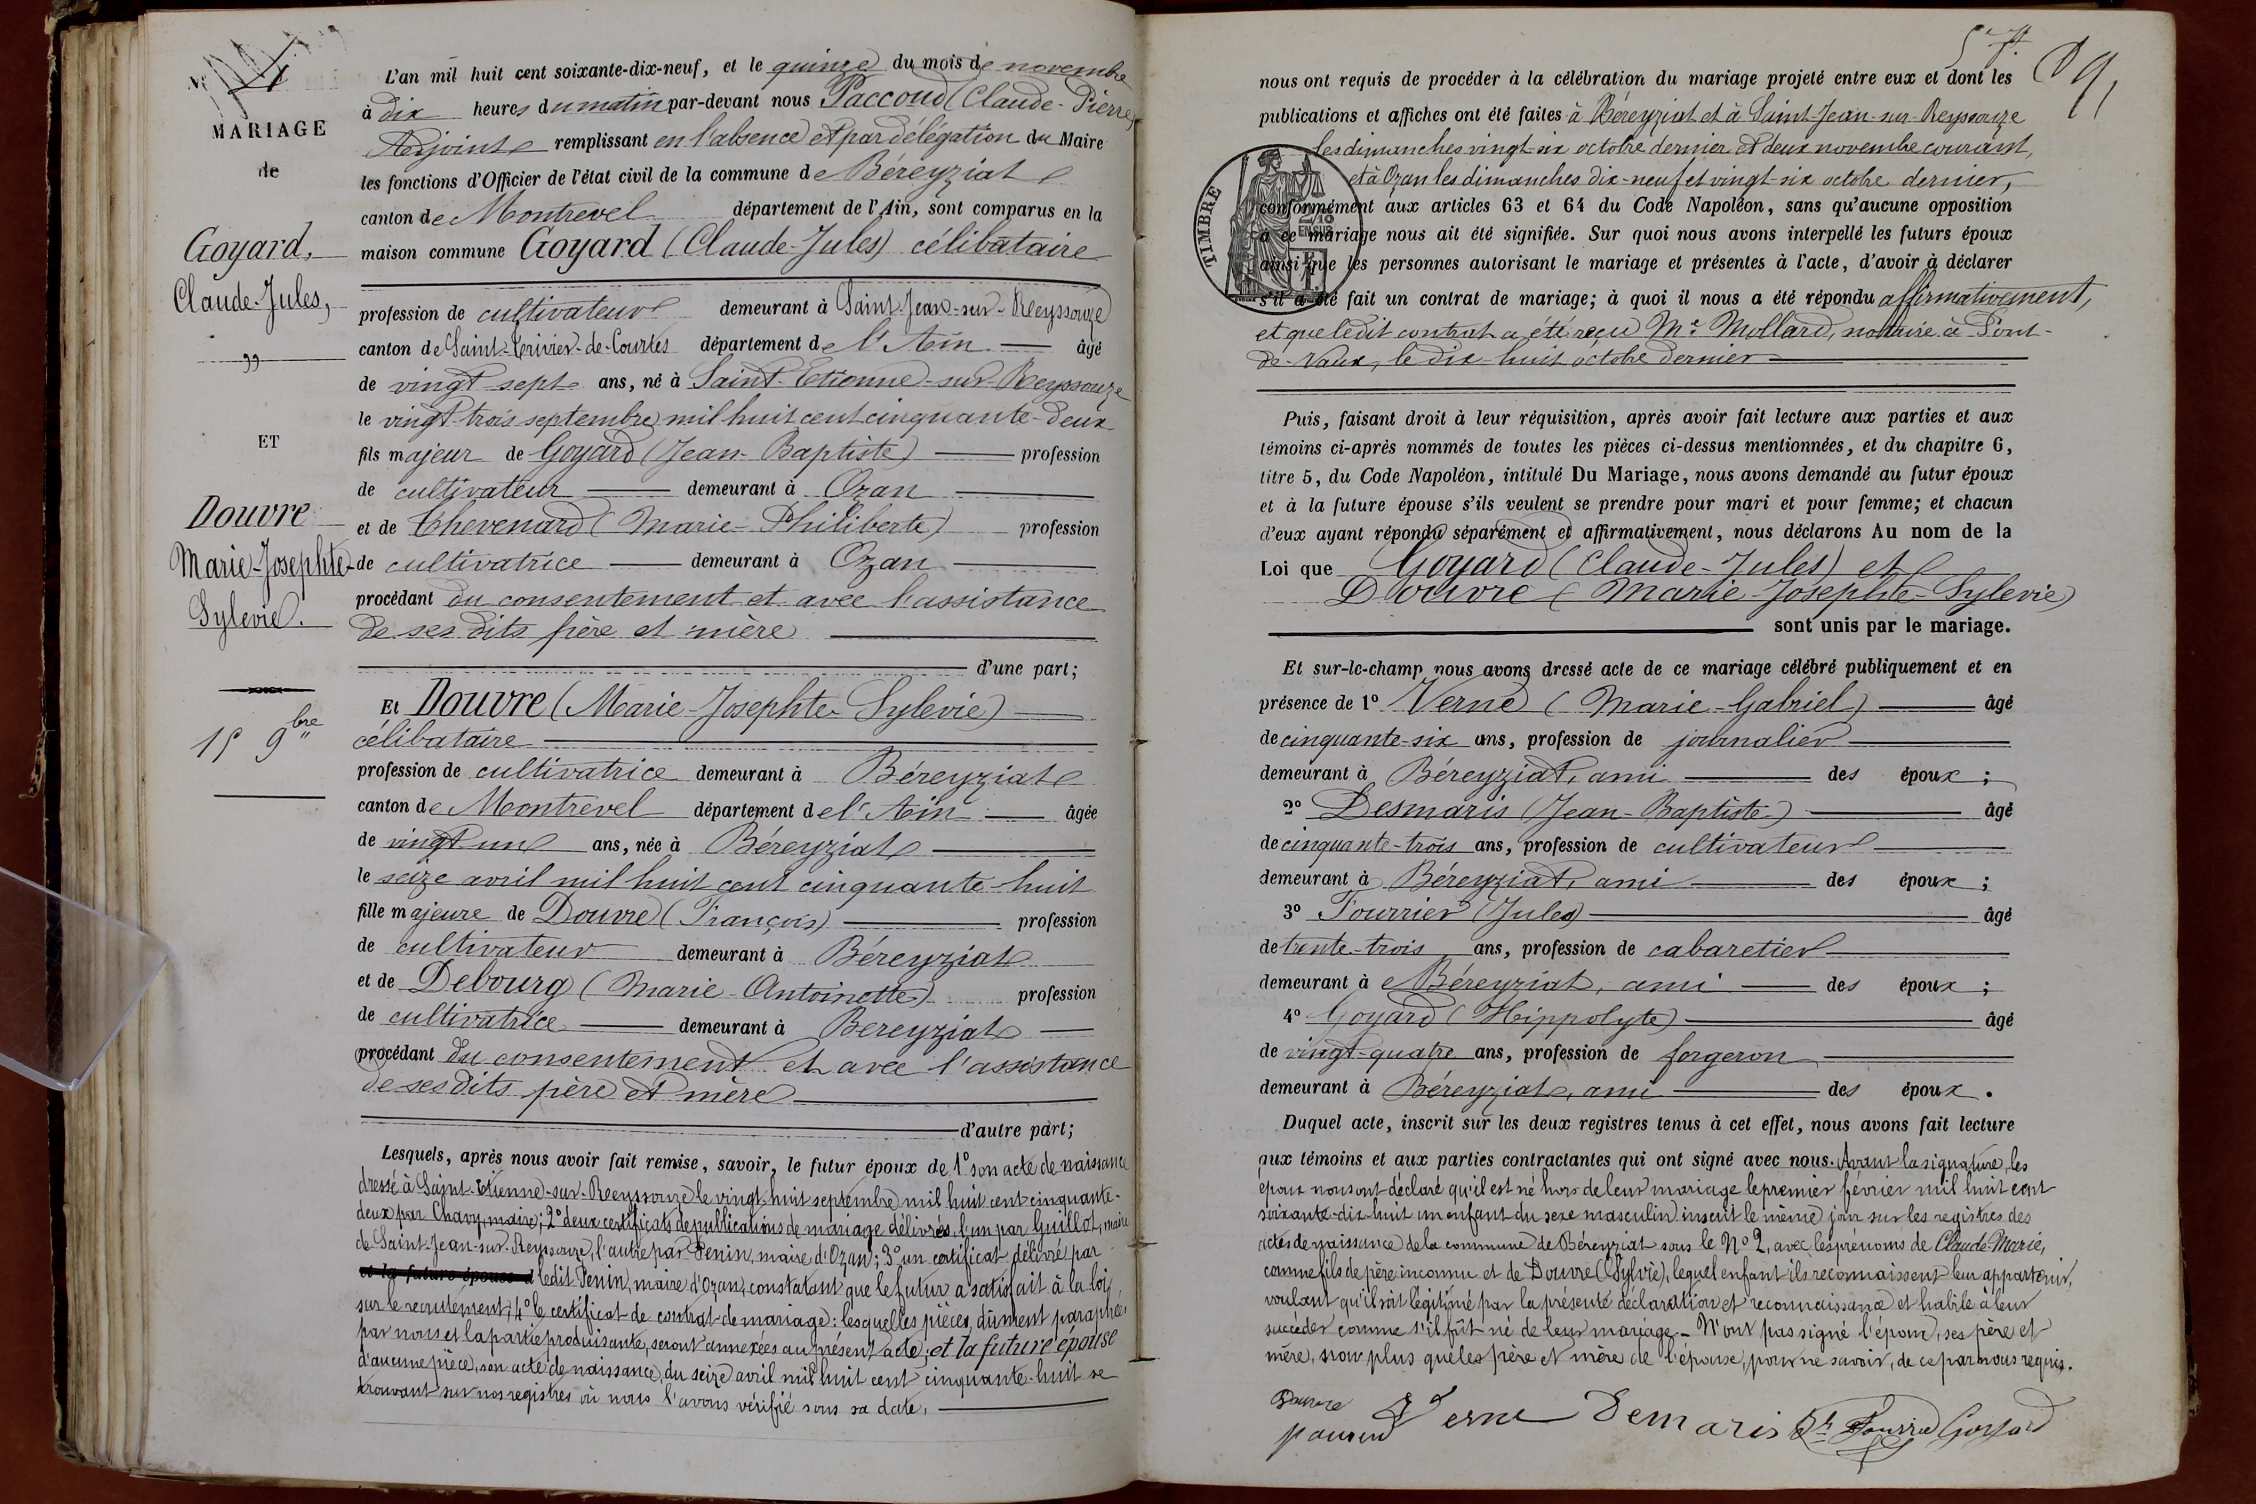 4
MARIAGE
de
Goyard,
Claude-Jules,
"
ET
Douvre
Marie-Josephte
Sylevie.
15 9bre
L'an mil huit cent soixante-dix-neuf, et le quinze du mois de novembre
à dix heures du matin par-devant nous Paccoud (Claude-Pierre)
Adjoint remplissant en l'absence et par délégation du Maire
les fonctions d'Officier de l'état civil de la commune de Béreyziat
canton de Montrevel département de l'Ain, sont comparus en la
maison commune Goyard (Claude-Jules) célibataire
profession de cultivateur demeurant à Saint-Jean-sur-Reyssouze
canton de Saint-Trivier-de-Courtes département de l'Ain âgé
de vingt-sept ans, né à Saint-Etienne-sur-Reyssouze
le vingt-trois septembre mil huit cent cinquante-deux
fils majeur de Goyard (Jean-Baptiste) profession
de cultivateur demeurant à Ozan
et de Chevenard (Marie-Philiberte) profession
de cultivatrice demeurant à Ozan
procédant du consentement et avec l'assistance
de ses dits père et mère
d'une part;
Et Douvre (Marie-Josephte-Sylevie)
célibataire
profession de cultivatrice demeurant à Béreyziat
canton de Montrevel département de l'Ain âgée
de vingt-un ans, née à Béreyziat
le seize avril mil huit cent cinquante-huit
fille majeure de Douvre (François) profession
de cultivateur demeurant à Béreyziat
et de Debourg (Marie-Antoinette) profession
de cultivatrice demeurant à Bereyziat
procédant du consentement et avec l'assistance
de ses dits père et mère
d'autre part;
Lesquels, après nous avoir fait remise, savoir, le futur époux de 1° son acte de naissance
dressé à Saint-Etienne-sur-Reeyssouze le vingt-huit septembre mil huit cent cinquante-
deux par Chavy, maire; 2° deux certificats de publications de mariage délivrés, l'un par Guillot, maire
de Saint-Jean-sur-Reyssouze, l'autre par Penin, maire d'Ozan; 3° un certificat délivré par
et la future épouse d ledit Penin, maire d'Ozan, constatant que le futur a satisfait à la loi
sur le recrutement; 4° le certificat de contrat de mariage: lesquelles pièces, dûment paraphées
par nous et la partie produisante, seront annexées au présent acte; et la future épouse
d'aucune pièce, son acte de naissance, du seize avril mil huit cent cinquante-huit se
trouvant sur nos registres où nous l'avons vérifié sous sa date.
nous ont requis de procéder à la célébration du mariage projeté entre eux et dont les
publications et affiches ont été faites à Béreyziat et à Saint-Jean-sur-Reyssouze
les dimanches vingt-six octobre dernier et deux novembre courant,
et à Ozan les dimanches dix-neuf et vingt-six octobre dernier,
TIMBRE
conformément aux articles 63 et 64 du Code Napoléon, sans qu'aucune opposition
à ce mariage nous ait été signifiée. Sur quoi nous avons interpellé les futurs époux
ainsi que les personnes autorisant le mariage et présentes à l'acte, d'avoir à déclarer
s'il a été fait un contrat de mariage; à quoi il nous a été répondu affirmativement,
et que ledit contrat a été reçu Me Mollard, notaire à Pont-
de-Vaux, le dix-huit octobre dernier
Puis, faisant droit à leur réquisition, après avoir fait lecture aux parties et aux
témoins ci-après nommés de toutes les pièces ci-dessus mentionnées, et du chapitre 6,
titre 5, du Code Napoléon, intitulé Du Mariage, nous avons demandé au futur époux
et à la future épouse s'ils veulent se prendre pour mari et pour femme; et chacun
d'eux ayant répondu séparément et affirmativement, nous déclarons Au nom de la
Loi que Goyard (Claude-Jules) et
Douvre (Marie-Josephte-Sylevie)
sont unis par le mariage.
Et sur-le-champ nous avons dressé acte de ce mariage célébré publiquement et en
présence de 1° Verne (Marie-Gabriel) âgé
de cinquante-six ans, profession de journalier
demeurant à Béreyziat, ami des époux;
2° Desmaris (Jean-Baptiste) âgé
de cinquante-trois ans, profession de cultivateur
demeurant à Béreyziat, ami des époux;
3° Fourrier (Jules) âgé
de trente-trois ans, profession de cabaretier
demeurant à Béreyziat, ami des époux;
4° Goyard (Hippolyte) âgé
de vingt-quatre ans, profession de forgeron
demeurant à Béreyziat, ami des époux.
Duquel acte, inscrit sur les deux registres tenus à cet effet, nous avons fait lecture
aux témoins et aux parties contractantes qui ont signé avec nous. Avant la signature, les
époux nous ont déclaré qu'il est né hors de leur mariage le premier février mil huit cent
soixante-dix-huit un enfant du sexe masculin inscrit le même jour sur les registres des
actes de naissance de la commune de Béreyziat sous le No 2, avec les prénoms de Claude-Marie,
comme fils de père inconnu et de Douvre (Sylvie), lequel enfant ils reconnaissent leur appartenir,
voulant qu'il soit légitimé par la présente déclaration et reconnaissance et habile à leur
succéder comme s'il fût né de leur mariage - N'ont pas signé l'époux, ses père et
mère, non plus que les père et mère de l'épouse, pour ne savoir, de ce par nous requis.
Douvre Verne Demaris Fourrier Goyard